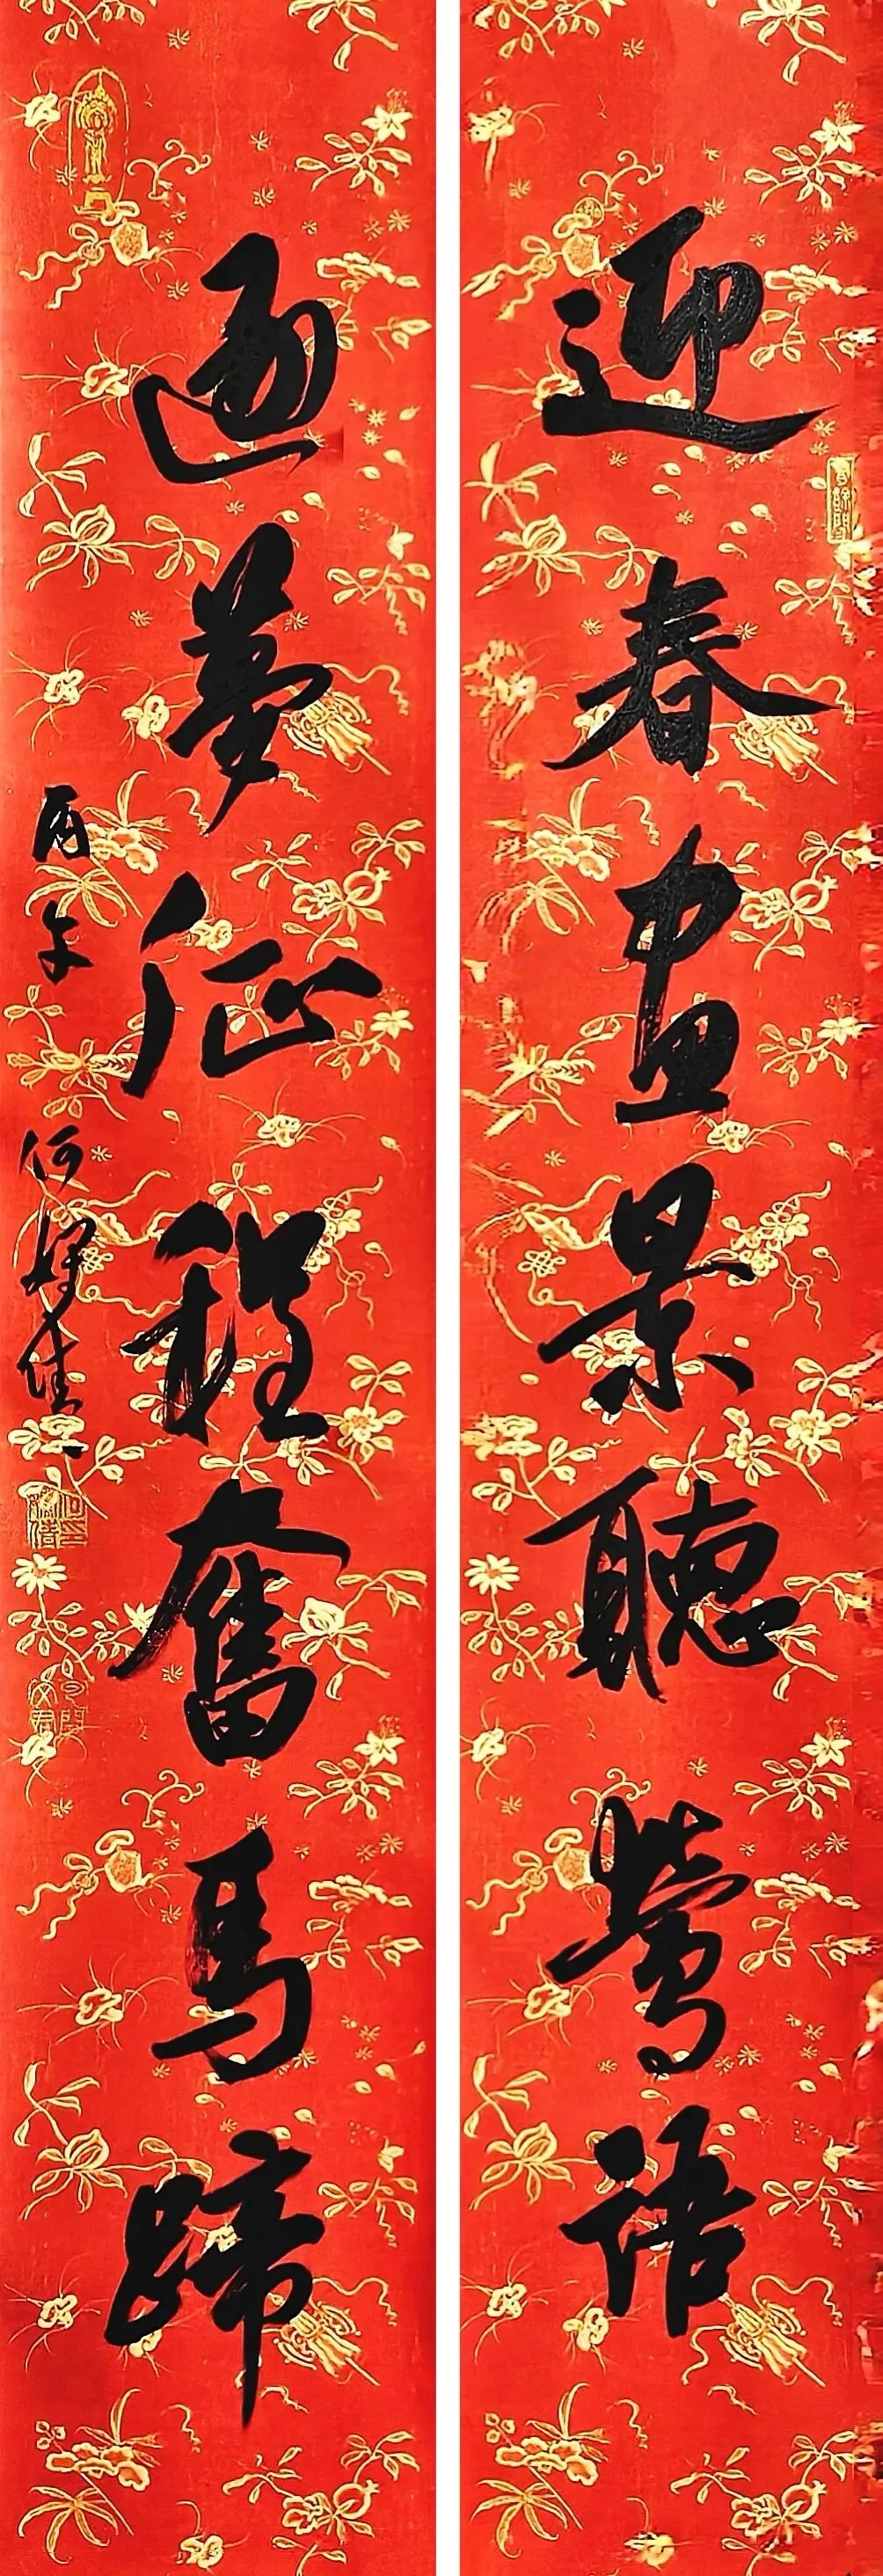 迎春畫景聽鶯語
逐夢征程奮馬蹄
丙午 何佳